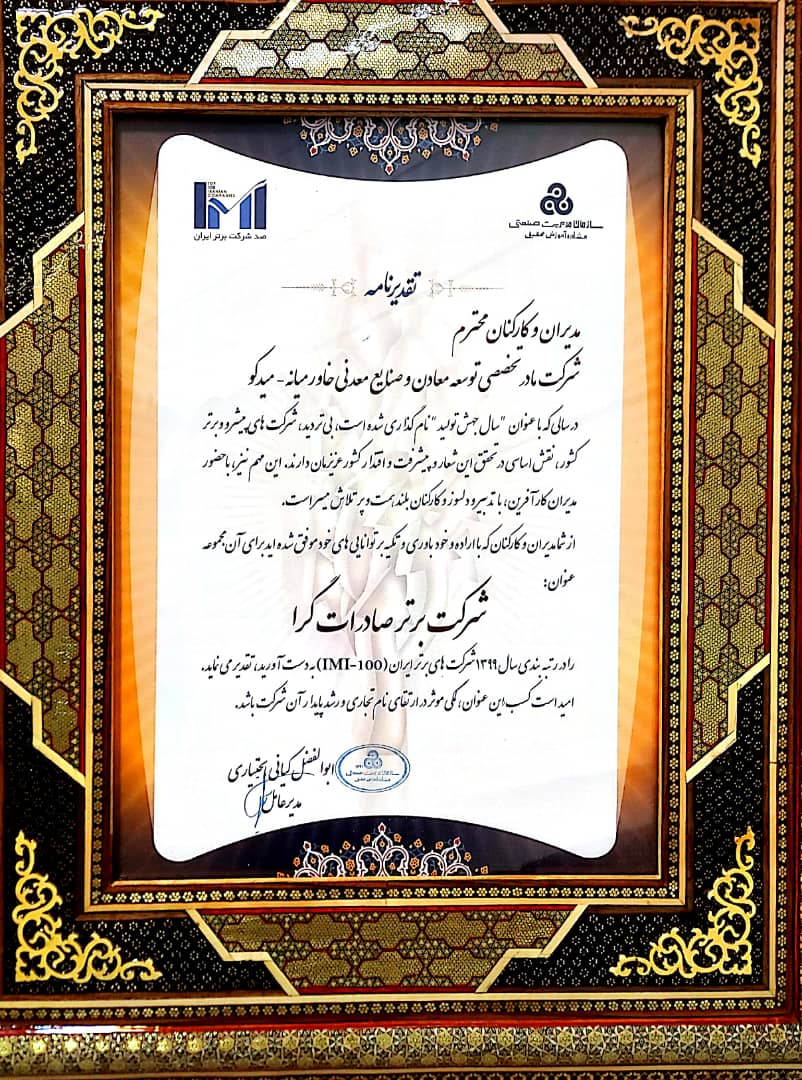 TOP
100
IRANIAN
COMPANIES
IMI
صد شرکت برتر ایران
سازمان مدیریت صنعتی
مشاوره آموزش تحقیق
تقدیرنامه
مدیران و کارکنان محترم
شرکت مادر تخصصی توسعه معادن و صنایع معدنی خاورمیانه - میدکو
در سالی که با عنوان "سال جهش تولید" نام گذاری شده است، بی تردید، شرکت های پیشرو و برتر
کشور، نقش اساسی در تحقق این شعار و پیشرفت و اقتدار کشور عزیزمان دارند. این مهم نیز، با حضور
مدیران کارآفرین، با تدبیر و دلسوز و کارکنان بلند همت و پرتلاش میسر است.
از شما مدیران و کارکنان که با اراده و خودباوری و تکیه بر توانایی های خود موفق شده اید برای آن مجموعه
عنوان:
شرکت برتر صادرات گرا
را در رتبه بندی سال ۱۳۹۹ شرکت های برتر ایران (IMI-100) به دست آورید، تقدیر می نماید.
امید است کسب این عنوان، کمکی موثر در ارتقای نام تجاری و رشد پایدار آن شرکت باشد.
ابوالفضل کیانی بختیاری
مدیرعامل
سازمان مدیریت صنعتی